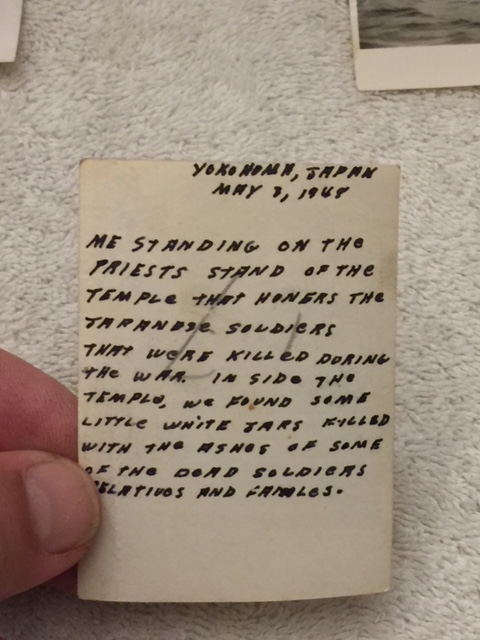 YOKOHOMA, JAPAN
MAY 3, 1948
ME STANDING ON THE
PRIESTS STAND OF THE
TEMPLE THAT HONERS THE
JAPANDSE SOLDIERS
THAT WERE KILLED DORING
THE WAR. IN SIDE THE
TEMPLO, WE FOUND SOME
LITTLE WHITE JARS FILLED
WITH THE ASHES OF SOME
OF THE DEAD SOLDIERS
RELATIVOS AND FAMOLES.